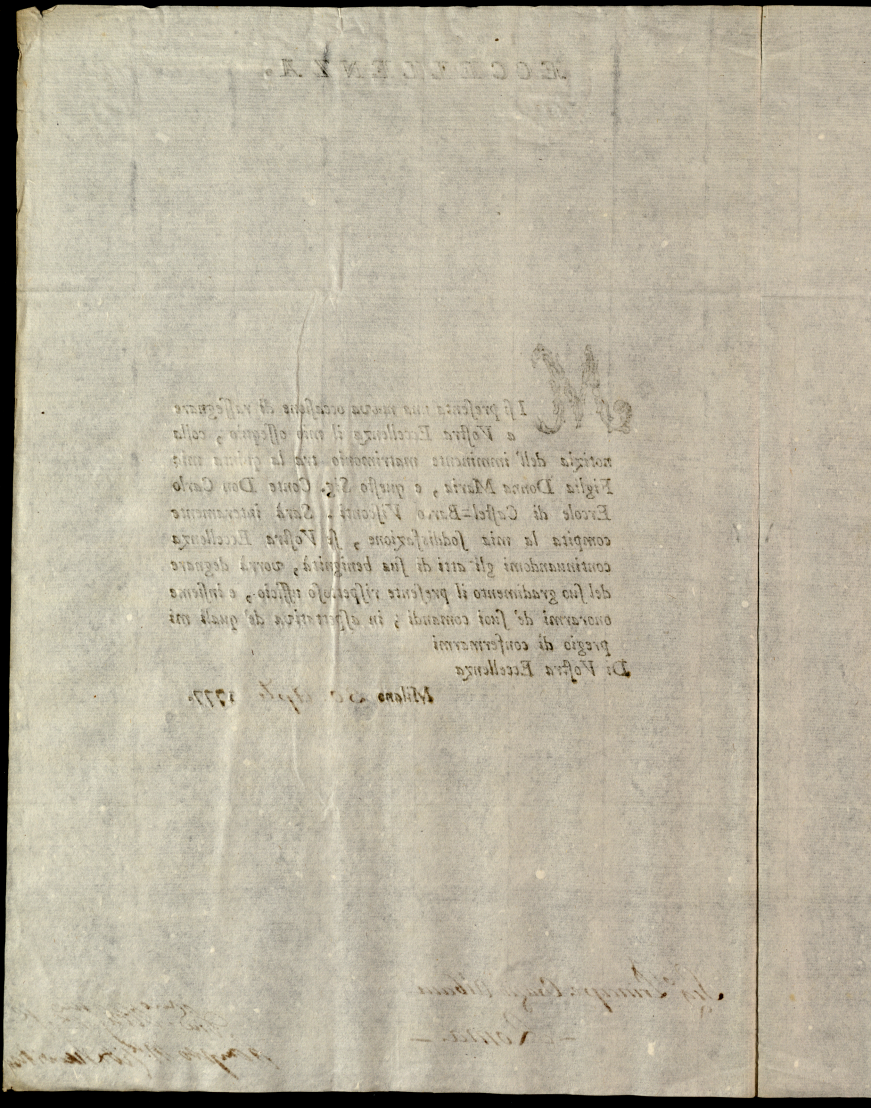 ECCELLENZA.
MI ſi preſenta una nuova occaſione di raſſegnare
a Voſtra Eccellenza il mio oſſequio, colla
notizia dell' imminente matrimonio tra la quinta mia
Figlia Donna Maria, e queſto Sig. Conte Don Carlo
Ercole di Caſtel=Barco Viſconti. Sarà interamente
compita la mia ſoddisfazione, ſe Voſtra Eccellenza
continuandomi gli atti di ſua benignità, vorrà degnare
del ſuo gradimento il preſente riſpettoſo ufficio, e inſieme
onorarmi de' ſuoi comandi; in aſpettativa de' quali mi
pregio di confermarmi
Di Voſtra Eccellenza
Milano 1777.
— Roma. —